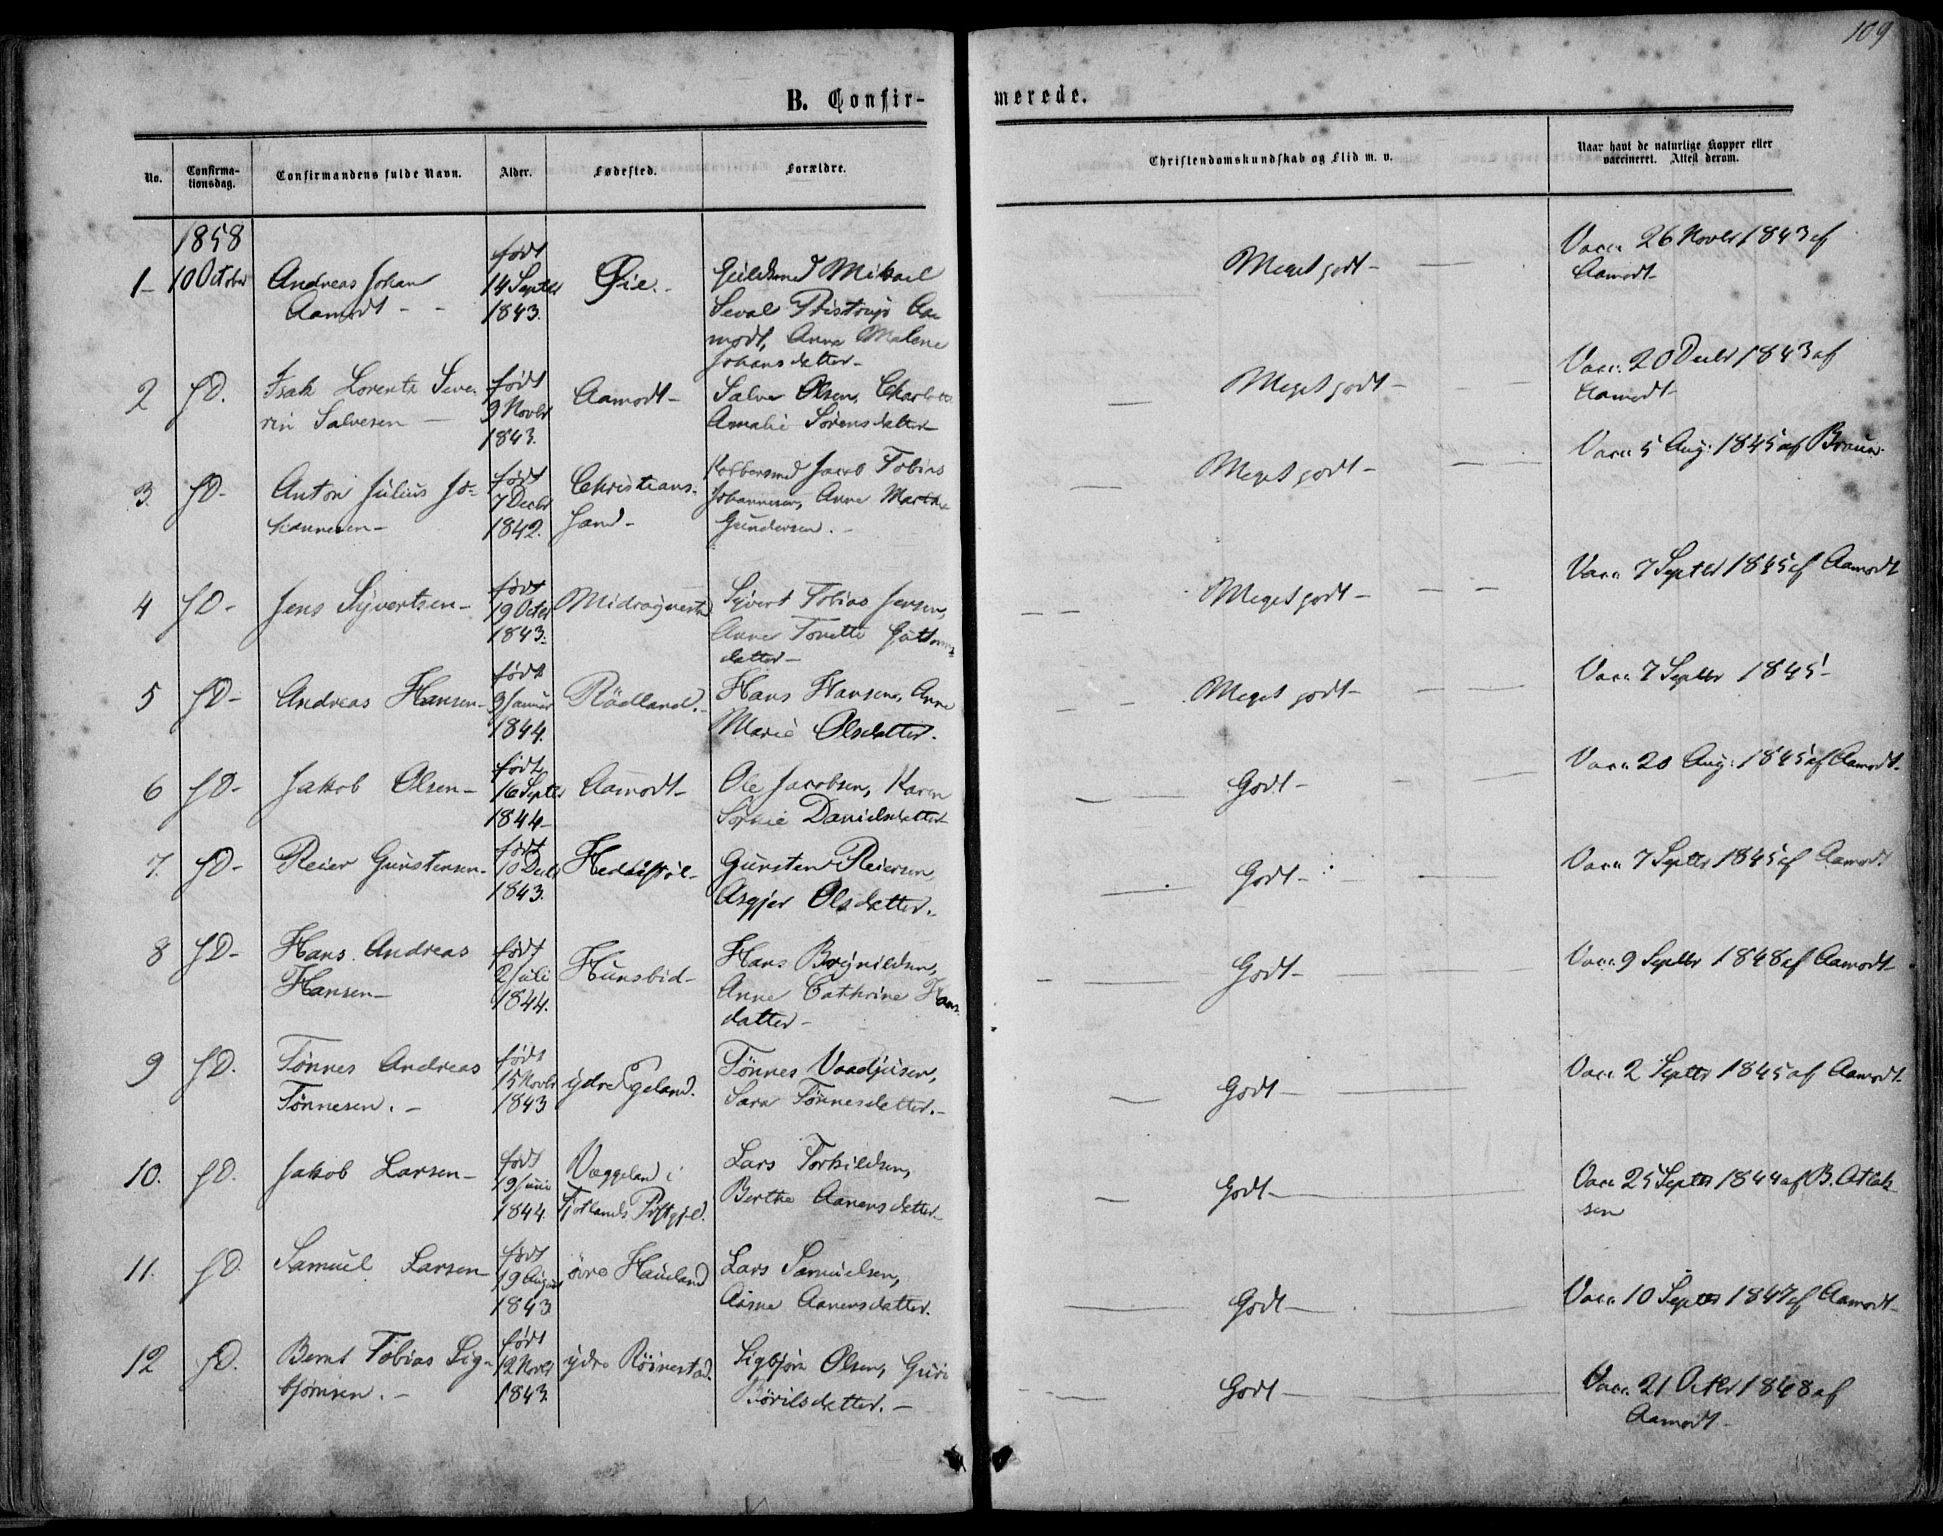 109
B. Confir-
merede.
No.
Confirma-
tionsdag.
Confirmandens fulde Navn.
Alder.
Fødested.
Forældre.
Christendomskundskab og Flid m. v.
Naar havt de naturlige Kopper eller
vaccineret. Attest derom.
1858
1- 10 October Andreas Johan
Aamodt - -
født
14 Septbr
1843.
Øie. -
Guldsmed Mikael
Seval Tristrup Aa
modt, Anne Malene
Johansdatter-
Meget godt -
Vacc. 26 Novbr 1843 af
Aamodt-
2 do. Isak Lorentz Seve-
rin Salvesen -
født
9 Novbr
1843.
Aamodt-
Salve Olsen, Charlotte
Amalie Sørensdatter-
Meget godt -
Vacc. 20 Decbr 1843 af
Aamodt-
3. do- Anton Julius Jo-
hannesen-
født
7 Decbr
1842.
Christians-
sand-
Kobbersmed Jacob Tobias
Johannesen, Anne Marthe
Gundersen. -
Meget godt -
Vacc. 5 Aug: 1845 af Braun-
4 do- Jens Syvertsen-
født
19 Octbr
1843.
Midrøgnestad
Syvert Tobias Jensen,
Anne Tonette Guttorms
datter-
Meget godt -
Vacc. 7 Septbr 1845 af Aamodt
5 do- Andreas Hansen-
født
9 Januar
1844.
Rödland.-
Hans Hansen, Anne
Marie Olsdatter.
Meget godt-
Vacc. 7 Septbr 1845-
6 do- Jakob Olsen-
født
16 Septbr
1844-
Aamodt-
Ole Jacobsen, Karen
Sophie Danielsdatter-
Godt-
Vacc. 20 Aug: 1845 af Aamodt.
7. do- Reier Gunstensen-
født
10 Decbr
1843.
Gunsten Reiersen
Asgjer Olsdatter.
Godt-
Vacc. 7 Septbr 1845 af Aamodt
8 do- Hans Andreas
Hansen-
født
2 Juli
1844.
Hunsbid-
Hans Brynildsen,
Anne Cathrine Hans
datter-
Godt-
Vacc. 9 Septbr 1848 af Aamodt-
9 do. Tønnes Andreas
Tønnesen. -
født
15 Novbr
1843
ydre Egeland.
Tønnes Vaadjusen,
Sara Tønnesdatter.-
Godt-
Vacc. 2 Septbr 1845 af Aamodt.
10. do. Jakob Larsen-
født
19 Juni
1844.
Væggeland i
Fjotlands Præstgjeld.
Lars Torkildsen,
Berthe Aanensdatter-
Godt-
Vacc. 25 Septbr 1844 af B. Aslak
sen
11. do. Samuel Larsen-
født
19 August
1843
øvre Haueland
Lars Samuelsen,
Aasne Aanensdatter.
Godt-
Vacc. 10 Septbr 1847 af Aamodt-
12 do. Bernt Tobias Sig-
bjørnsen. -
født
12 Novbr
1843.
ydre Röinestad.
Sigbjørn Olsen, Guri
Børilsdatter. -
Godt-
Vacc. 21 Octbr 1848 af
Aamodt-